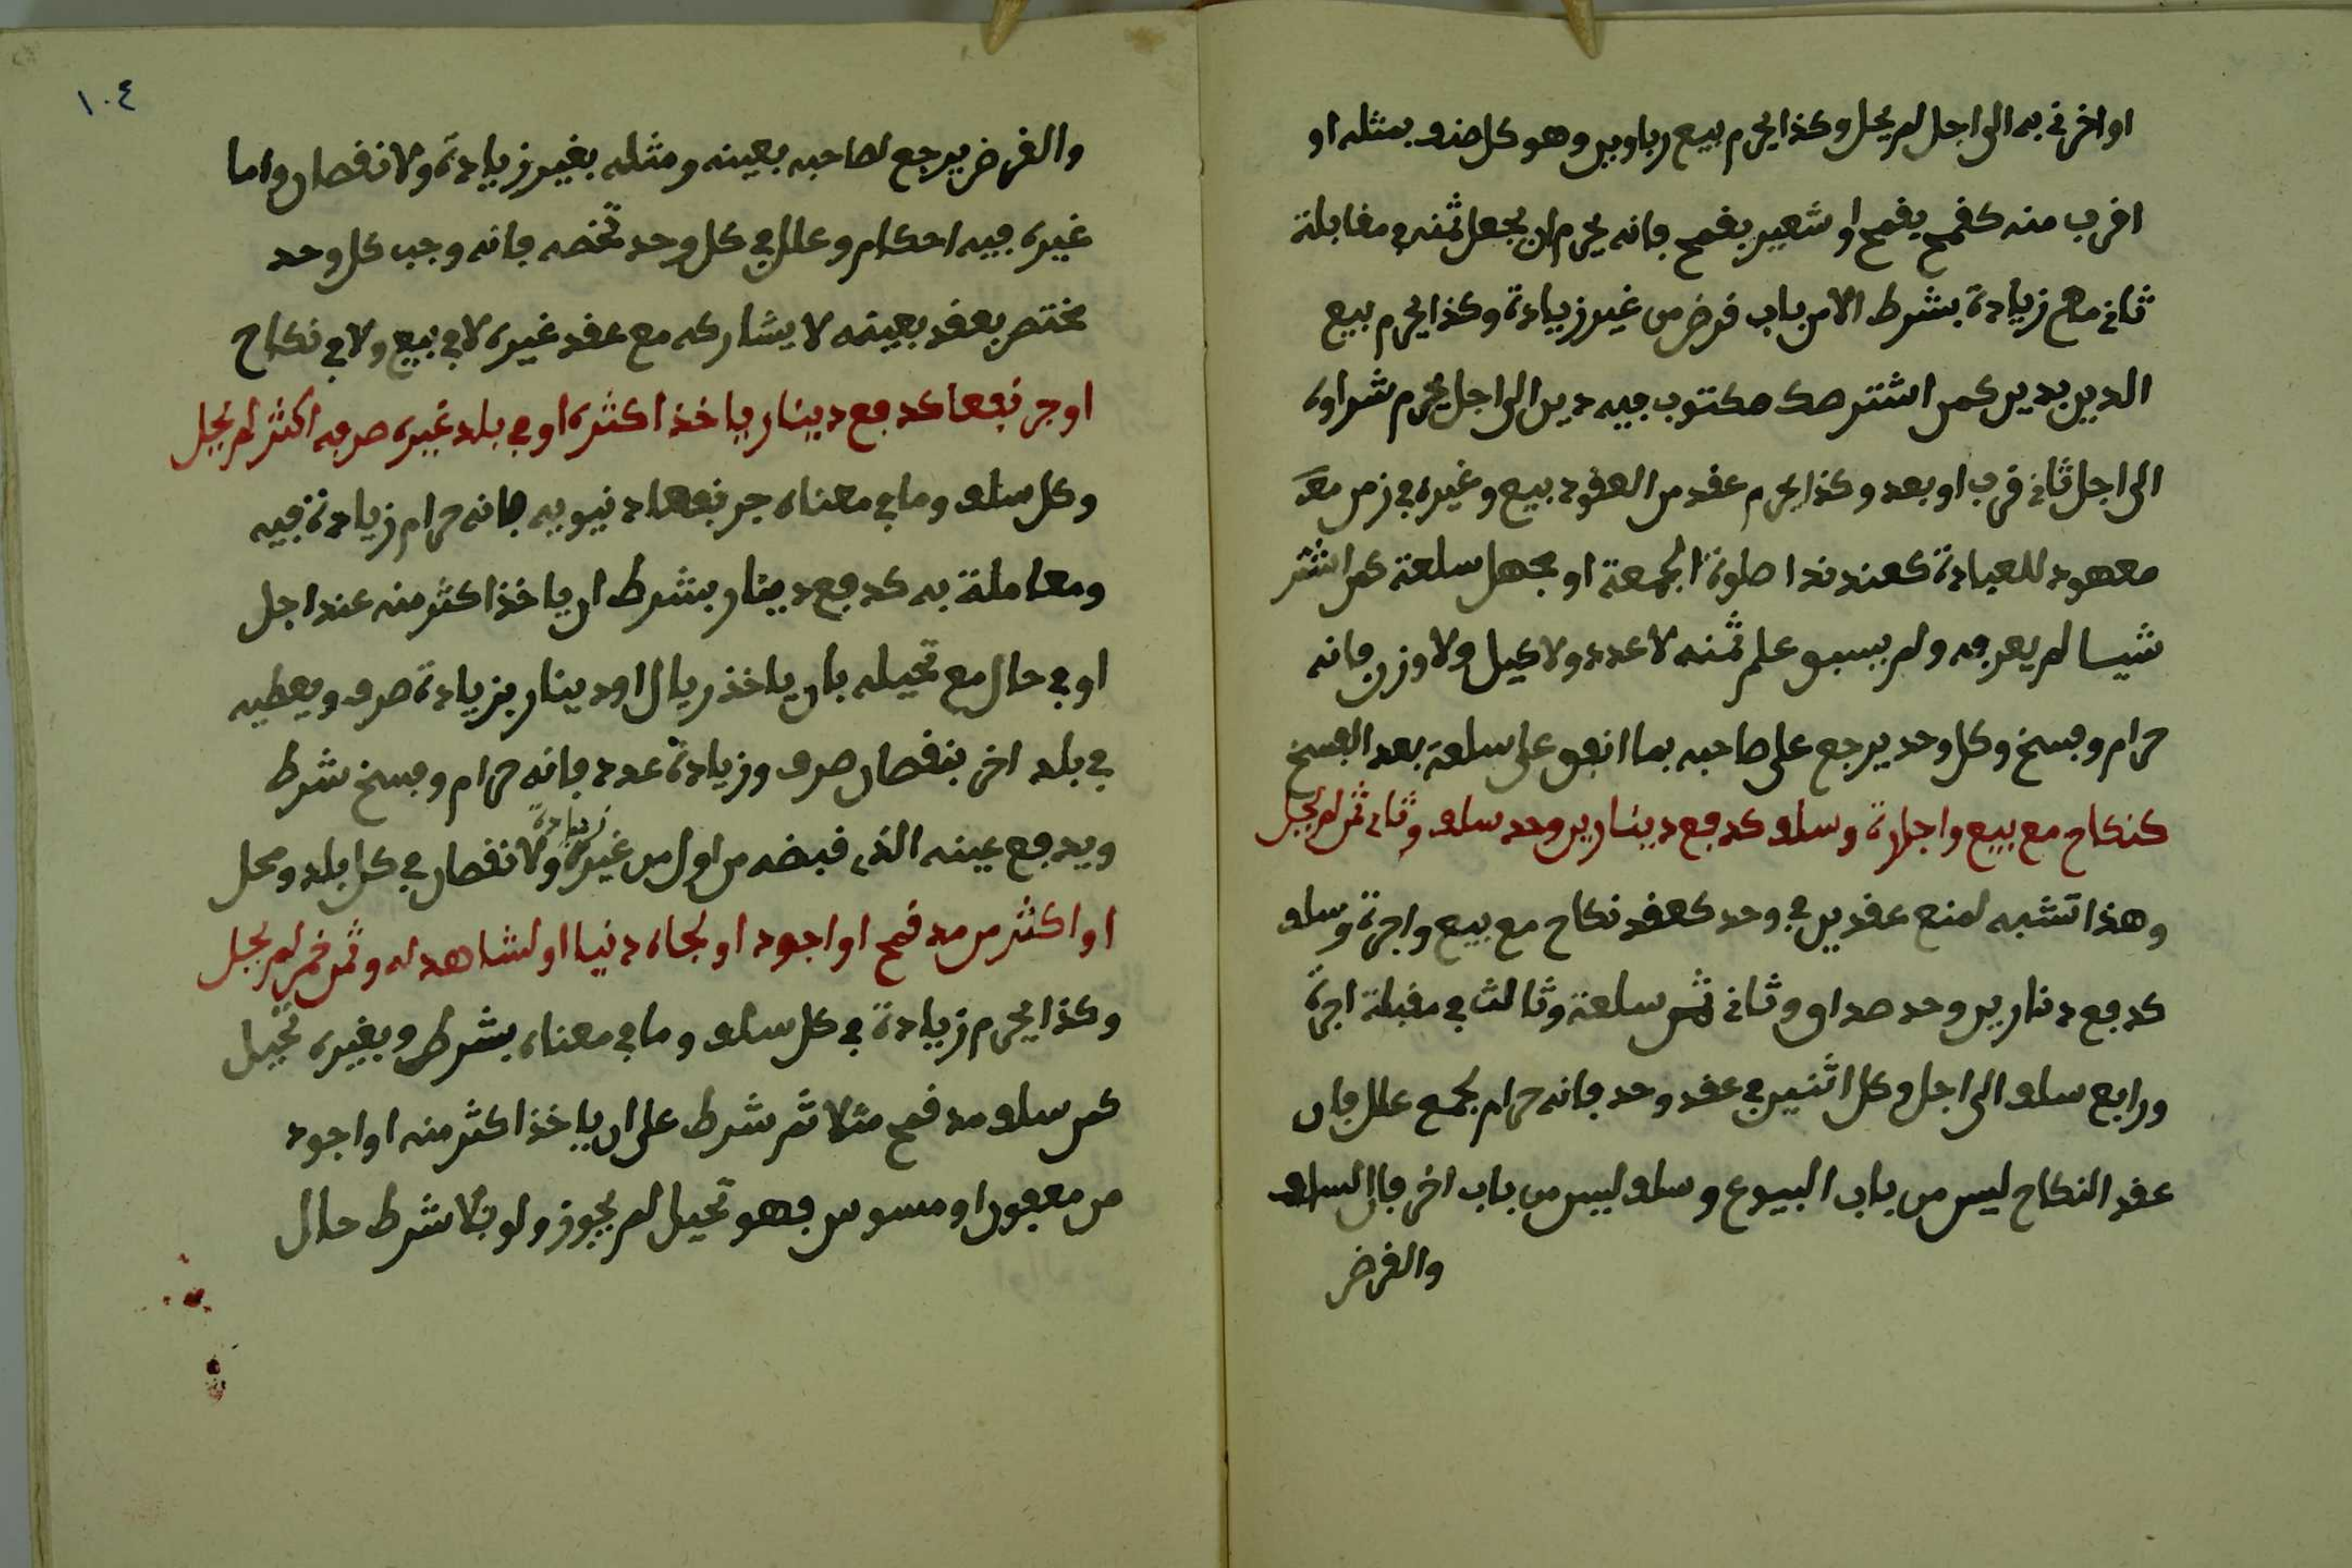 او اخر في به الى اجل لم يحل وكذا يحرم بيع ربا وبين وهو كل صنف بمثله او
اقرب منه كقمح بقمح او شعير بقمح فانه يحرم ان يجعل ثمنه في مقابلة
ثاني مع زيادة بشرط الا من باب قرض من غير زيادة وكذا يحرم بيع
الدين بدين كمن اشتر صك مكتوب فيه دين الى اجل يحرم شراوه
الى اجل ثاني قرب او بعد وكذا يحرم عقد من العقود بيع وغيره في زمن معد
معهود للعبادة كعند ندا صلوة الجمعة او بجهل سلعة كمن اشتر
شيسا لم يعرفه ولم يسبق علم ثمنه لا عدد ولا كيل ولا وزن فانه
حرام وفسخ وكل وحد يرجع على صاحبه بما انفق على سلعة بعد الفسخ
كنكاح مع بيع واجارة وسلف كدفع دينارين وحد سلف وثاني ثمن لم يحل
وهذا تشبه لمنع عقدين في وحد كعقد نكاح مع بيع واجرة وسلف
كدفع دنارين وحد صداق وثاني ثمن سلعة وثالث في مقبلة اجرة
ورابع سلف الى اجل وكل اثنين في عقد وحد فانه حرام لجمع علل فان
عقد النكاح ليس من باب البيوع وسلف ليس من باب اخر فان السلف
والقرض
١٠٤
والقرض يرجع لصاحبه بعينه ومثله بغير زيادة ولا نقصان واما
غيره فيه احكام وعلل في كل وحد تخصه فانه وجب كل وحد
مختص بعقد بعينه لا يشاركه مع عقد غيره لا في بيع ولا في نكاح
او جر نفعا كدفع دينار ياخذ اكثره او في بلد غيره صرفه اكثر لم يحل
وكل سلف وما في معناه جر نفعا دنيويه فانه حرام زيادة فيه
ومعاملة به كدفع دينار بشرط ان ياخذ اكثر منه عند اجل
او في حال مع تحيله بان ياخذ ريال او دينار بزيادة صرف ويعطيه
في بلد اخر بنقصان صرف وزيادة عدد فانه حرام وفسخ شرط
ويدفع عينه الذي قبضه من اول من غير زيادة ولا نقصان في كل بلد ومحل
او اكثر من مد قمح او اجود او لجاه دنيا او لشاهد له وثمن خمر لم يحل
وكذا يحرم زيادة في كل سلف وما في معناه بشرط وبغيره تحيل
كمن سلف مد قمح مثلا ثم شرط على ان ياخذ اكثر منه او اجود
من معفون او مسوس فهو تحيل لم يجوز ولو بلا شرط حال